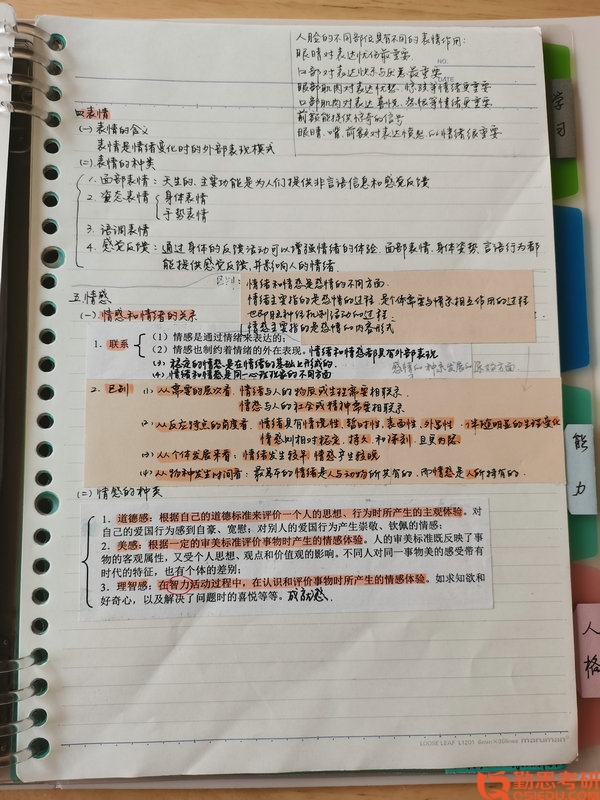 人脸的不同部位具有不同的表情作用:
眼睛对表达忧伤最重要
口部对表达快乐与厌恶最重要
NO.
DATE
眼部肌肉对表达忧愁、惊骇等情绪更重要
口部肌肉对表达喜悦、怨恨等情绪更重要
前额能提供惊奇的信号
眼睛、嘴、前额对表达愤怒的情绪很重要
四.表情
(一)表情的含义
表情是情绪变化时的外部表现模式
(二)表情的种类
1.面部表情:天生的、主要功能是为人们提供非言语信息和感觉反馈
2.姿态表情 身体表情
手势表情
3.语调表情
4.感觉反馈:通过身体的反馈活动可以增强情绪的体验.面部表情.身体姿势.言语行为都
能提供感觉反馈,并影响人的情绪.
五.情感
区别:
情绪和情感是感情的不同方面.
(一)情感和情绪的关系
情绪主要指的是感情的过程.是个体需要与情景相互作用的过程
也即脑神经机制活动的过程.
情感主要指的是感情的内容形式
1.联系
(1)情感是通过情绪来表达的;
(2)情感也制约着情绪的外在表现。情绪和情感都具有外部表现
(3)稳定的情感是在情绪的基础上形成的.
(4)情绪和情感是同一心理现象的不同方面
2.区别
(1)从需要的层次看.情绪与人的物质或生理需要相联系
情感与人的社会或精神需要相联系
(2)从反应特点的角度看.情绪具有情境性、暂时性、表面性、外显性、伴随明显的生理变化
情感则相对稳定、持久和深刻.且更内隐.
(3)从个体发展来看:情绪发生较早.情感产生较晚
(4)从物种发生时间看:最基本的情绪是人与动物所共有的.而情感是人所特有的.
(二)情感的种类
1.道德感:根据自己的道德标准来评价一个人的思想、行为时所产生的主观体验。对
自己的爱国行为感到自豪、宽慰;对别人的爱国行为产生崇敬、钦佩的情感;
2.美感:根据一定的审美标准评价事物时产生的情感体验。人的审美标准既反映了事
物的客观属性,又受个人思想、观点和价值观的影响。不同人对同一事物美的感受带有
时代的特征,也有个体的差别;
3.理智感:在智力活动过程中,在认识和评价事物时所产生的情感体验。如求知欲和
好奇心,以及解决了问题时的喜悦等等。成就感.
学习
能力
人格
LOOSE LEAF L1201 6mm×30lines maruman
勤思考研
QSIEDU.COM